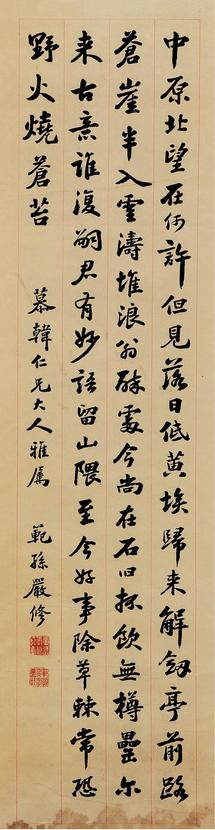 中原北望在何許但見落日低黃埃歸来解劔亭前路
蒼崖半入雲濤堆浪翁醉處今尚在石臼抔飲無樽罍尔
来古意誰復嗣君有妙語留山隈至今好事除草棘常恐
野火燒蒼苔
慕韓仁兄大人雅屬
範孫嚴修